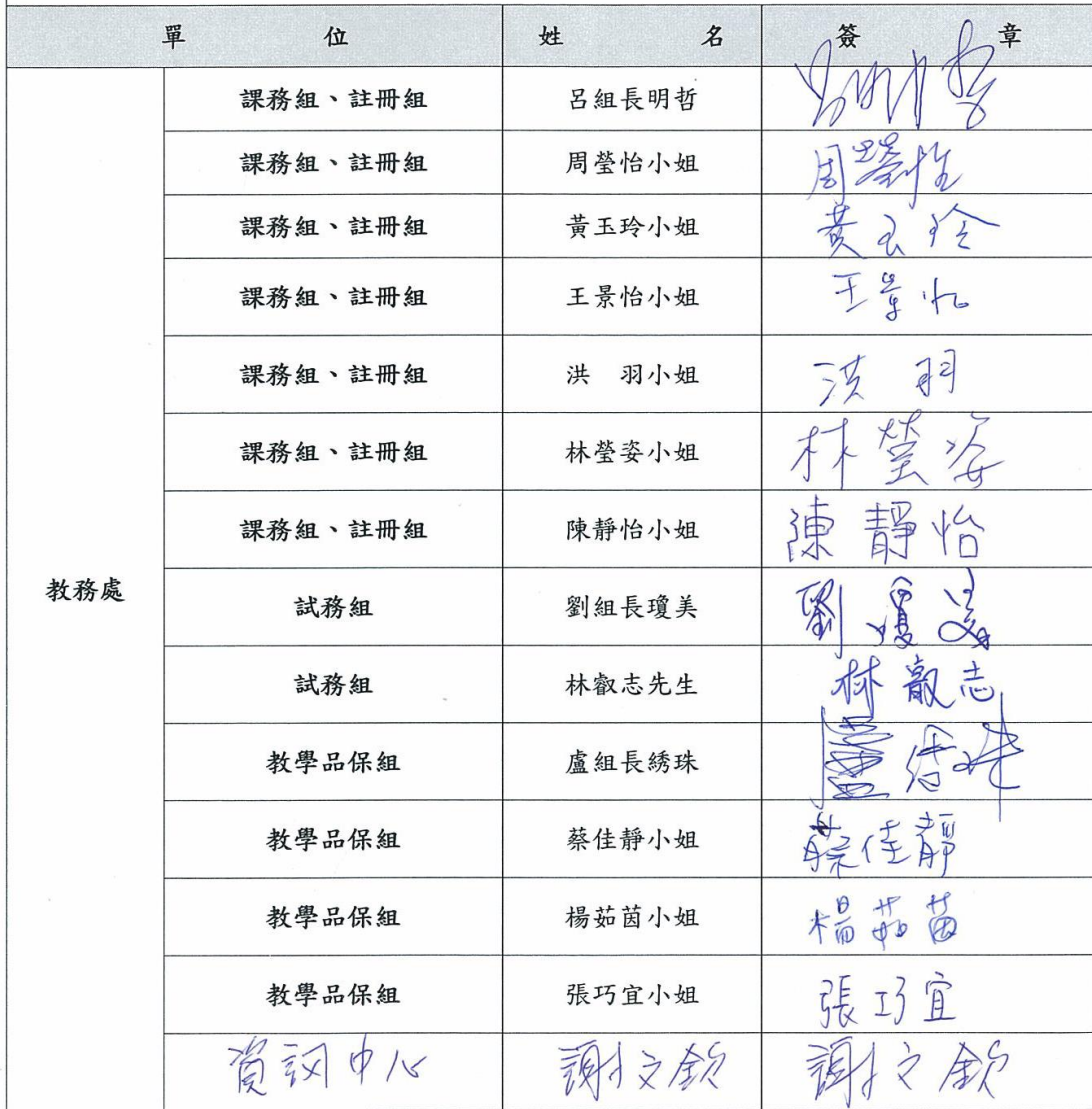 單 位 姓 名 簽 章
課務組、註冊組 呂組長明哲 呂明哲
課務組、註冊組 周瑩怡小姐 周瑩怡
課務組、註冊組 黃玉玲小姐 黃玉玲
課務組、註冊組 王景怡小姐 王景怡
課務組、註冊組 洪 羽小姐 洪羽
課務組、註冊組 林瑩姿小姐 林瑩姿
課務組、註冊組 陳靜怡小姐 陳靜怡
教務處
試務組 劉組長瓊美 劉瓊美
試務組 林叡志先生 林叡志
教學品保組 盧組長綉珠 盧綉珠
教學品保組 蔡佳靜小姐 蔡佳靜
教學品保組 楊茹茵小姐 楊茹茵
教學品保組 張巧宜小姐 張巧宜
資訊中心 謝文欽 謝文欽